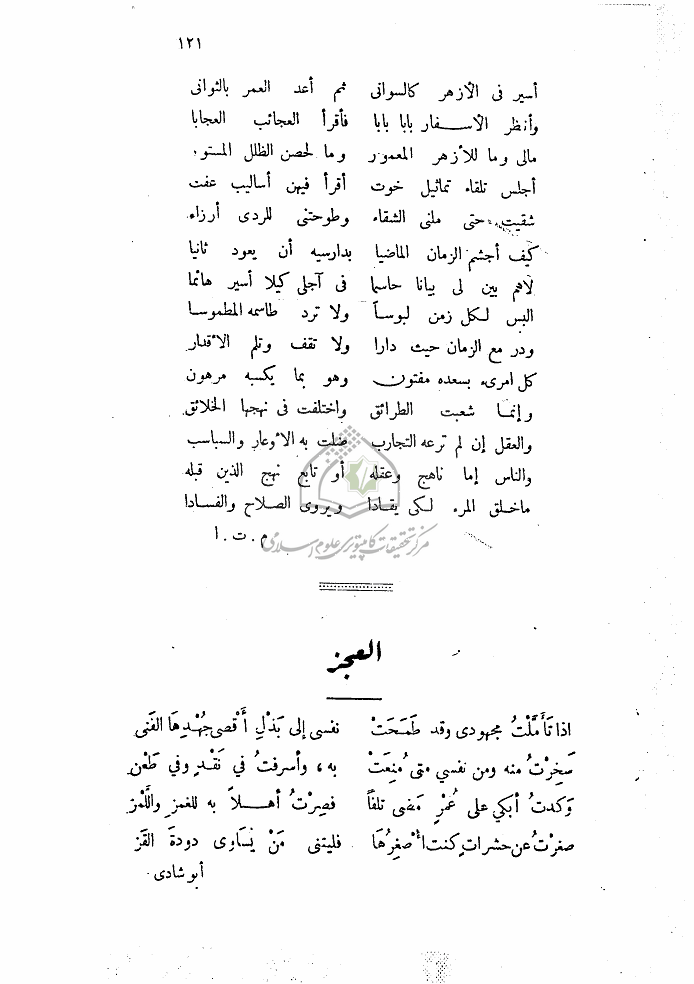 ١٢١
أسير فى الأزهر كالسوانى ثم أعد العمر بالثوانى
وأنظر الأسفار بابا بابا فأقرأ العجائب العجابا
مالى وما للأزهر المعمور وما لحصن الظلل المستور
أجلس تلقاء تماثيل خوت أقرأ فيهن أساليب عفت
شقيت حتى ملنى الشقاء وطوحتنى للردى أرزاء
كيف أجشم الزمان الماضيا بدارسيه أن يعود ثانيا
لاهم بين لى بيانا حاسما فى آجلى كيلا أسير هائما
البس لكل زمن لبوساً ولا ترد طاسمه المطموسا
ودر مع الزمان حيث دارا ولا تقف وتلم الأقدار
كل امرىء بسعده مفتون وهو بما يكسبه مرهون
وإنما شعبت الطرائق واختلفت فى نهجها الخلائق
والعقل إن لم ترعه التجارب ضلت به الأوعار والسباسب
والناس إما ناهج وعقله أو تابع نهج الذين قبله
ماخلق المرء لكى يقادا ويروى الصلاح والفسادا
م. ت. ا
مركز تحقيقات كامپيوترى علوم اسلامى
العجز
اذا تأمَّلْتُ مجهودى وقد طَمَحَتْ نفسى إلى بَذْلِ أَقصى جُهْدِهَا الفَنى
سَخِرْتُ منه ومن نفسي متى مُنِعَتْ به، وأسرفتُ في نَقْدٍ وفي طَعْنِ
وَكدتُ أبكي على عُمْرٍ مَضى تلفاً فصِرْتُ أهلاً به للغمزِ واللَّمْزِ
صغرْتُ عن حشراتٍ كنت أصْغِرُهَا فليتنى مَنْ يُسَاوِى دودةَ القَزِّ
أبو شادى.